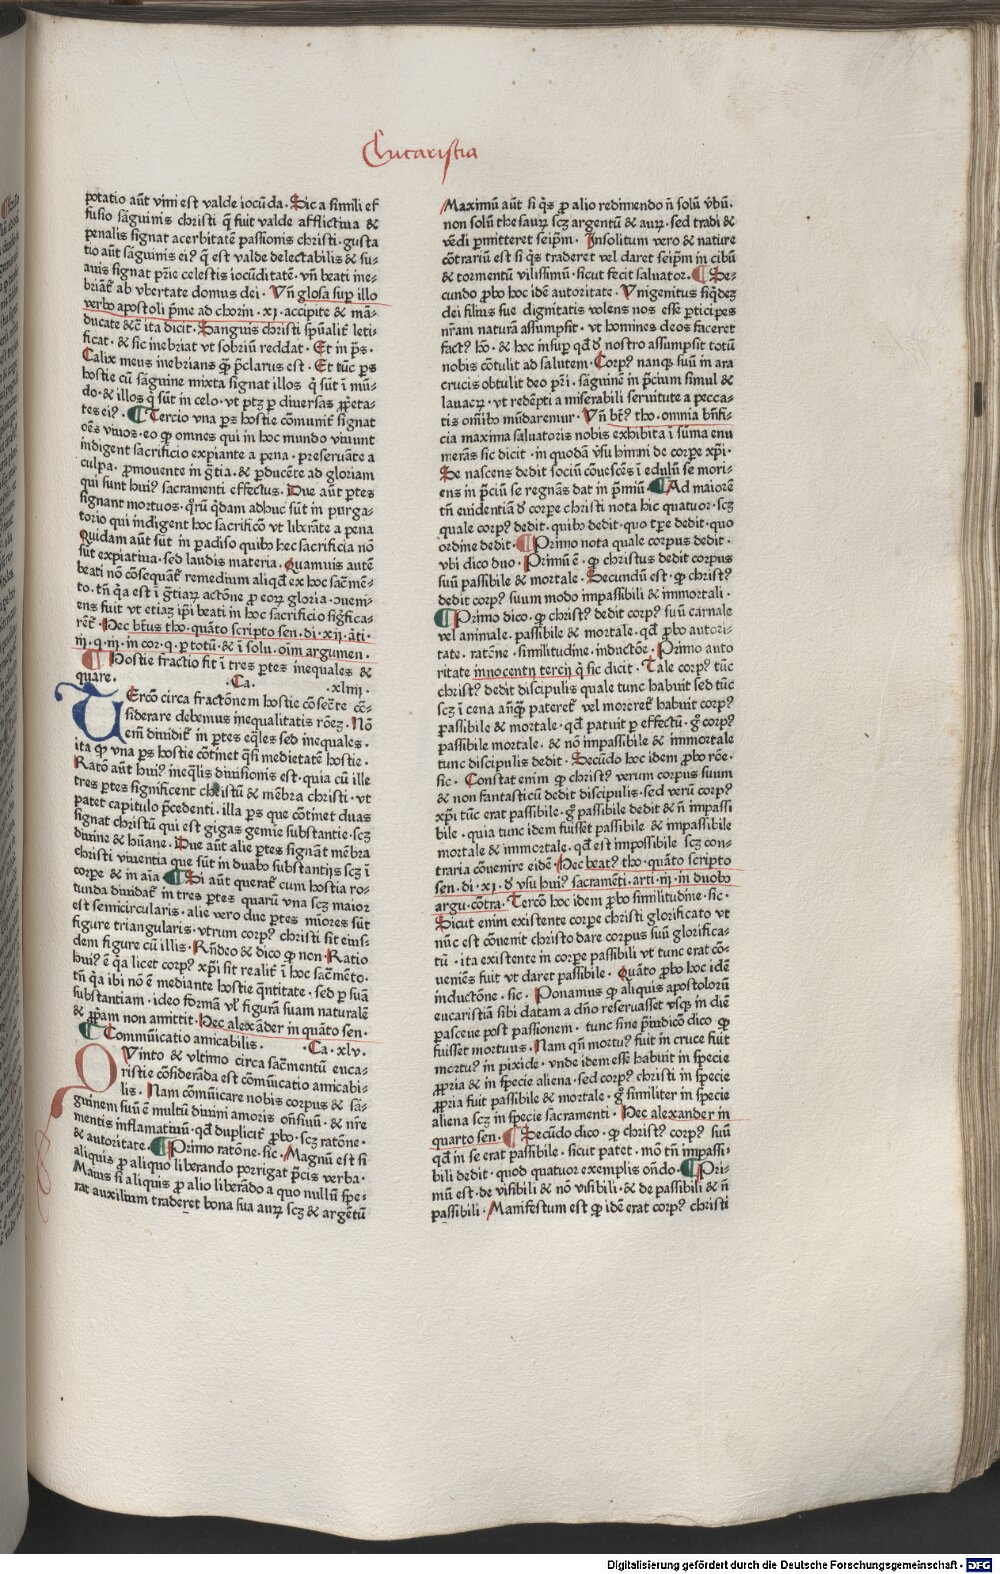 Eucaristia
potatio aūt vini est valde iocūda. Sic a simili ef
fusio sāguinis christi q̄ fuit valde afflictiua &
penalis signat acerbitatē passionis christi. gusta
tio aūt sāguinis eiꝰ q̄ est valde delectabilis & su-
auis signat pr̄ie celestis iocūditatē. vn̄ beati ine-
briāt᷑ ab vbertate domus dei. Vn̄ glosa suꝑ illo
verbo apostoli p̄me ad chorin. xi. accipite & mā-
ducate &c̄ ita dicit. Sanguis christi sp̄nalit᷑ leti-
ficat. & sic inebriat vt sobriū reddat. Et in ps̄.
Calix meus inebrians qꝫ p̄clarus est. Et tūc ps̄
hostie cū sāguine mixta signat illos q̄ sūt ī mū-
do. & illos q̄ sūt in celo. vt ptꝫ ꝑ diuersas ꝓp̄eta-
tes eiꝰ. Tercio vna ps̄ hostie cōmunit᷑ signat
oēs viuos. eo ꝙ omnes qui in hoc mundo viuunt
indigent sacrificio expiante a pena. preseruāte a
culpa. ꝓmouente in gr̄tia. & ꝑducēte ad gloriam
qui sunt huiꝰ sacramenti effectus. Due aūt ꝑtes
signant mortuos. qͦrū qͥdam adhuc sūt in purga-
torio qui indigent hoc sacrificō vt liberāte a pena
Quidam aūt sūt in ꝑadiso quibꝰ hec sacrificia nō
sūt expiatiua. sed laudis materia. Quamuis autē
beati nō cōsequāt᷑ remedium aliqd̄ ex hoc sac̄mē-
to. tn̄ qͥa est ī gr̄tiaꝝ actōne ꝓ eoꝝ gloria. ꝯueni-
ens fuit vt etiaꝫ ip̄i beati in hoc sacrificio siḡfica-
rēt᷑. Hec btūs tho. quāto scripto sen. di. xij. arti.
iij. q. iij. in cor. q. ꝑ totū. & ī solu. oīm argumen.
Hostie fractio fit ī tres ꝑtes inequales &
quare. Ca. xliiij.
TErcō circa fractōnem hostie cōsec̄te cō-
siderare debemus inequalitatis rōeꝫ. Nō
em̄ diuidit᷑ in ꝑtes eq̄les sed inequales.
ita ꝙ vna ps̄ hostie cōtinet q̄si medietatē hostie.
Ratō aūt huiꝰ ineq̄lis diuisionis est. quia cū ille
tres ꝑtes significent christū & mēbra christi. vt
patet capitulo p̄cedenti. illa ꝑs que cōtinet duas
signat christū qui est gigas gemie substantie. scꝫ
diuine & hūane. Due aūt alie ꝑtes signāt mēbra
christi viuentia que sūt in duabꝰ substantijs scꝫ ī
corꝑe & in aīa Si aūt querat᷑ cum hostia ro-
tunda diuidat᷑ in tres ꝑtes quarū vna scꝫ maior
est semicircularis. alie vero due ꝑtes mīores sūt
figure triangularis. vtrum corpꝰ christi sit eius-
dem figure cū illis. Rn̄deo & dico ꝙ non. Ratio
huiꝰ ē qͥa licet corpꝰ xp̄i sit realit᷑ ī hoc sac̄mēto.
tn̄ qͥa ibi nō ē mediante hostie qͣntitate. sed ꝑ suā
substantiam. ideo formā vl᷑ figurā suam naturalē
& ꝓpͥam non amittit. Hec alexāder in quāto sen.
Commūicatio amicabilis. Ca. xlv.
QVinto & vltimo circa sac̄mentū euca-
ristie cōsiderāda est cōmūicatio amicabi-
lis. Nam cōmūicare nobis corpus & sā-
guinem suū ē multū diuini amoris on̄siuū. & nr̄e
mentis inflamatiuū. qd̄ duplicit᷑ ꝓbo. scꝫ ratōne.
& autoritate. Primo ratōne. sic. Magnū est si
aliquis ꝓ aliquo liberando porrigat p̄cis verba.
Maius si aliquis ꝓ alio liberādo a quo nullū spe-
rat auxilium traderet bona sua auꝝ scꝫ & argētū
Maximū aūt si qͥs ꝓ alio redimendo n̄ solū vbū.
non solū thesauꝝ scꝫ argentū & auꝝ. sed tradi &
vēdi ꝑmitteret seip̄m. Insolitum vero & nature
cōtrariū est si qͥs traderet vel daret seip̄m in cibū
& tormentū vilissimū. sicut fecit saluator. Se-
cundo ꝓbo hoc idē autoritate. Vnigenitus siqͥdeꝫ
dei filius sue dignitatis volens nos esse ꝑticipes
nr̄am naturā assumpsit. vt homines deos faceret
factꝰ hō. & hoc insuꝑ qd̄ d̄ nostro assumpsit totū
nobis cōtulit ad salutem. Corpꝰ nanqꝫ suū in ara
crucis obtulit deo pr̄i. sāguinē in p̄cium simul &
lauacꝝ. vt redēpti a miserabili seruitute a pecca-
tis oīmbꝰ mūdaremur. Vn̄ bt̄ꝰ tho. omnia bn̄fi-
cia maxima saluatoris nobis exhibita ī sūma enu
merās sic dicit. in quodā v̄su himni de corꝑe xp̄i.
Se nascens dedit sociū cōuescēs ī edulū se mori-
ens in p̄ciū se regnās dat in p̄miū. Ad maiorē
tn̄ euidentiā d̄ corꝑe christi nota hic quatuor. scꝫ
quale corpꝰ dedit. quibꝰ dedit. quo tꝑe dedit. quo
ordine dedit. Primo nota quale corpus dedit.
vbi dico duo. Primū ē. ꝙ christus dedit corpus
suū passibile & mortale. Secundū est. ꝙ christꝰ
dedit corpꝰ suum modo impassibili & immortali.
Primo dico. ꝙ christꝰ dedit corpꝰ suū carnale
vel animale. passibile & mortale. qd̄ ꝓbo autori-
tate. ratōne. similitudine. inductōe. Primo auto
ritate innocentij tercij q̄ sic dicit. Tale corpꝰ tūc
christꝰ dedit discipulis quale tunc habuit sed tūc
scꝫ ī cena an̄qͣꝫ pateret᷑ vel moreret᷑ habuit corpꝰ
passibile & mortale. qd̄ patuit ꝑ effectū. gͦ corpꝰ
passibile mortale. & nō impassibile & immortale
tunc discipulis dedit. Secūdo hoc idem ꝓbo rōne.
sic. Constat enim ꝙ christꝰ verum corpus suum
& non fantasticū dedit discipulis. sed verū corpꝰ
xp̄i tūc erat passibile. gͦ passibile dedit & n̄ impassi
bile. quia tunc idem fuisset passibile & impassibile
mortale & immortale. qd̄ est impossibile scꝫ con-
traria cōuenire eidē. Hec beatꝰ tho. quāto scripto
sen. di. xi. d̄ vsu huiꝰ sacramēti. arti. iij. in duobꝰ
argu. cōtra. Tercō hoc idem ꝓbo similitudine. sic.
Sicut enim existente corꝑe christi glorificato vt
nūc est cōuenit christo dare corpus suū glorifica-
tū. ita existente in corꝑe passibili vt tunc erat cō-
ueniēs fuit vt daret passibile. Quāto ꝓbo hoc idē
inductōne. sic. Ponamus ꝙ aliquis apostolorū
eucaristiā sibi datam a dn̄o reseruasset vsqꝫ in diē
parasceue post passionem. tunc sine p̄iudicō dico ꝙ
fuisset mortuus. Nam qn̄ mortuꝰ fuit in cruce fuit
mortuꝰ in pixide. vnde idem esse habuit in specie
ꝓpria & in specie aliena. sed corpꝰ christi in specie
ꝓpria fuit passibile & mortale. gͦ similiter in specie
aliena scꝫ in specie sacramenti. Hec alexander in
quarto sen. Secūdo dico. ꝙ christꝰ corpꝰ suū
qd̄ in se erat passibile. sicut patet. mō tn̄ impassi-
bili dedit. quod quatuor exemplis on̄do. Pri-
mū est. de visibili & nō visibili. & de passibili & n̄
passibili. Manifestum est ꝙ idē erat corpꝰ christi
Digitalisierung gefördert durch die Deutsche Forschungsgemeinschaft - DFG